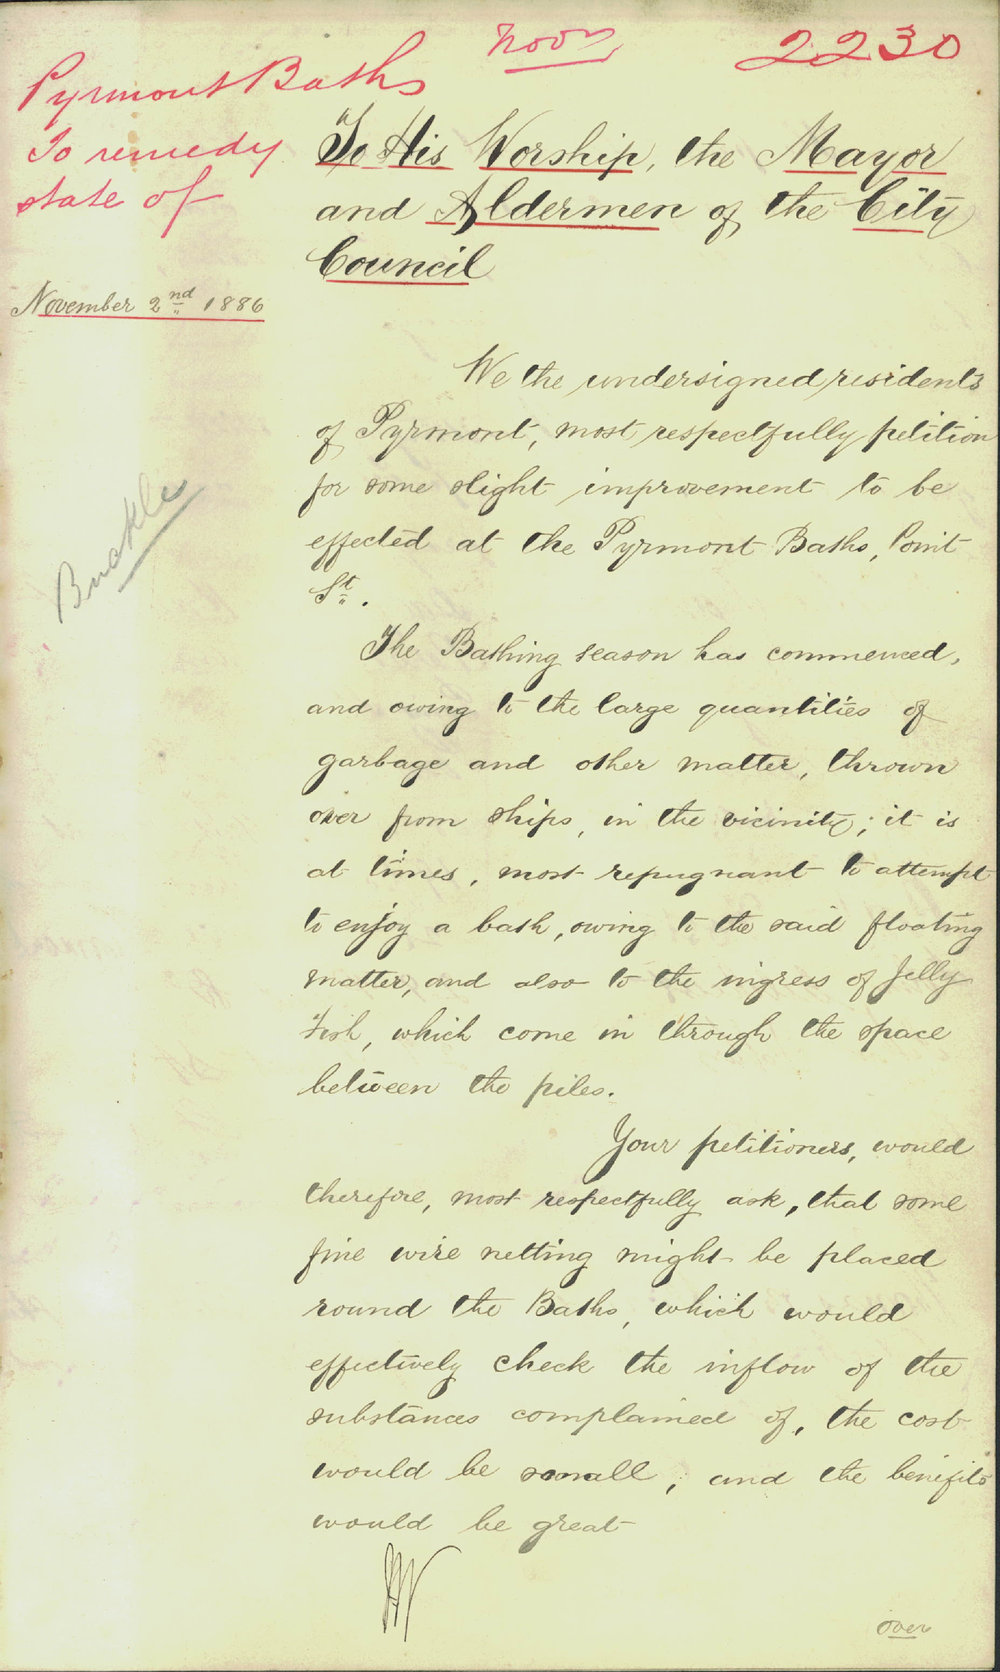 Noon
2230
Pyrmont Baths
To remedy
state of
To His Worship, the Mayor
and Aldermen of the City
Council
November 2nd 1886
We the undersigned residents
of Pyrmont, most respectfully petition
for some slight improvement to be
effected at the Pyrmont Baths, Point
St.
Buckle
The Bathing season has commenced,
and owing to the large quantities of
garbage and other matter, thrown
over from ships, in the vicinity; it is
at times, most repugnant to attempt
to enjoy a bath, owing to the said floating
matter, and also to the ingress of Jelly
Fish, which come in through the space
between the piles.
Your petitioners, would
therefore, most respectfully ask, that some
fine wire netting might be placed
round the Baths, which would
effectively check the inflow of the
substances complained of, the cost
would be small, and the benifits
would be great
over